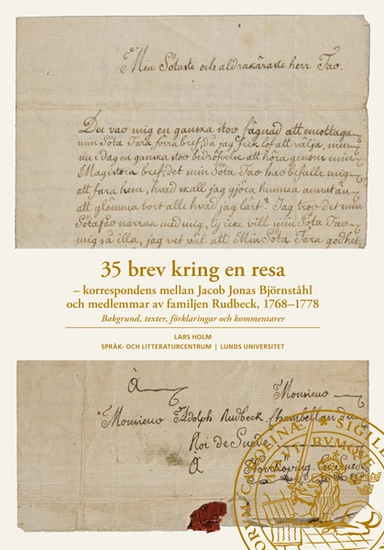 Min Sötaste och aldrakäraste herr Far.
Det var mig en ganska stor fägnad att emottaga
min Söta Fars förra bref, då jag fick lof att välja, men
nu i dag en ganska stor bedröfvelse att höra genom min
Magisters bref, det min Söta Far har befalt mig
att fara hem, hvad skall jag göra hemma annat än
att glömma bort allt hvad jag lärt? Jag tror det min
Söta far narras med mig, ty icke vill min Söta Far
mig så illa, jag vet väl att Min Söta Fars godhet
35 brev kring en resa
– korrespondens mellan Jacob Jonas Björnståhl
och medlemmar av familjen Rudbeck, 1768–1778
Bakgrund, texter, förklaringar och kommentarer
LARS HOLM
SPRÅK- OCH LITTERATURCENTRUM | LUNDS UNIVERSITET
À Monsieur
Monsieur Adolph Rudbeck, Chambellan
Roi de Suede
À Norrkoping en Suede